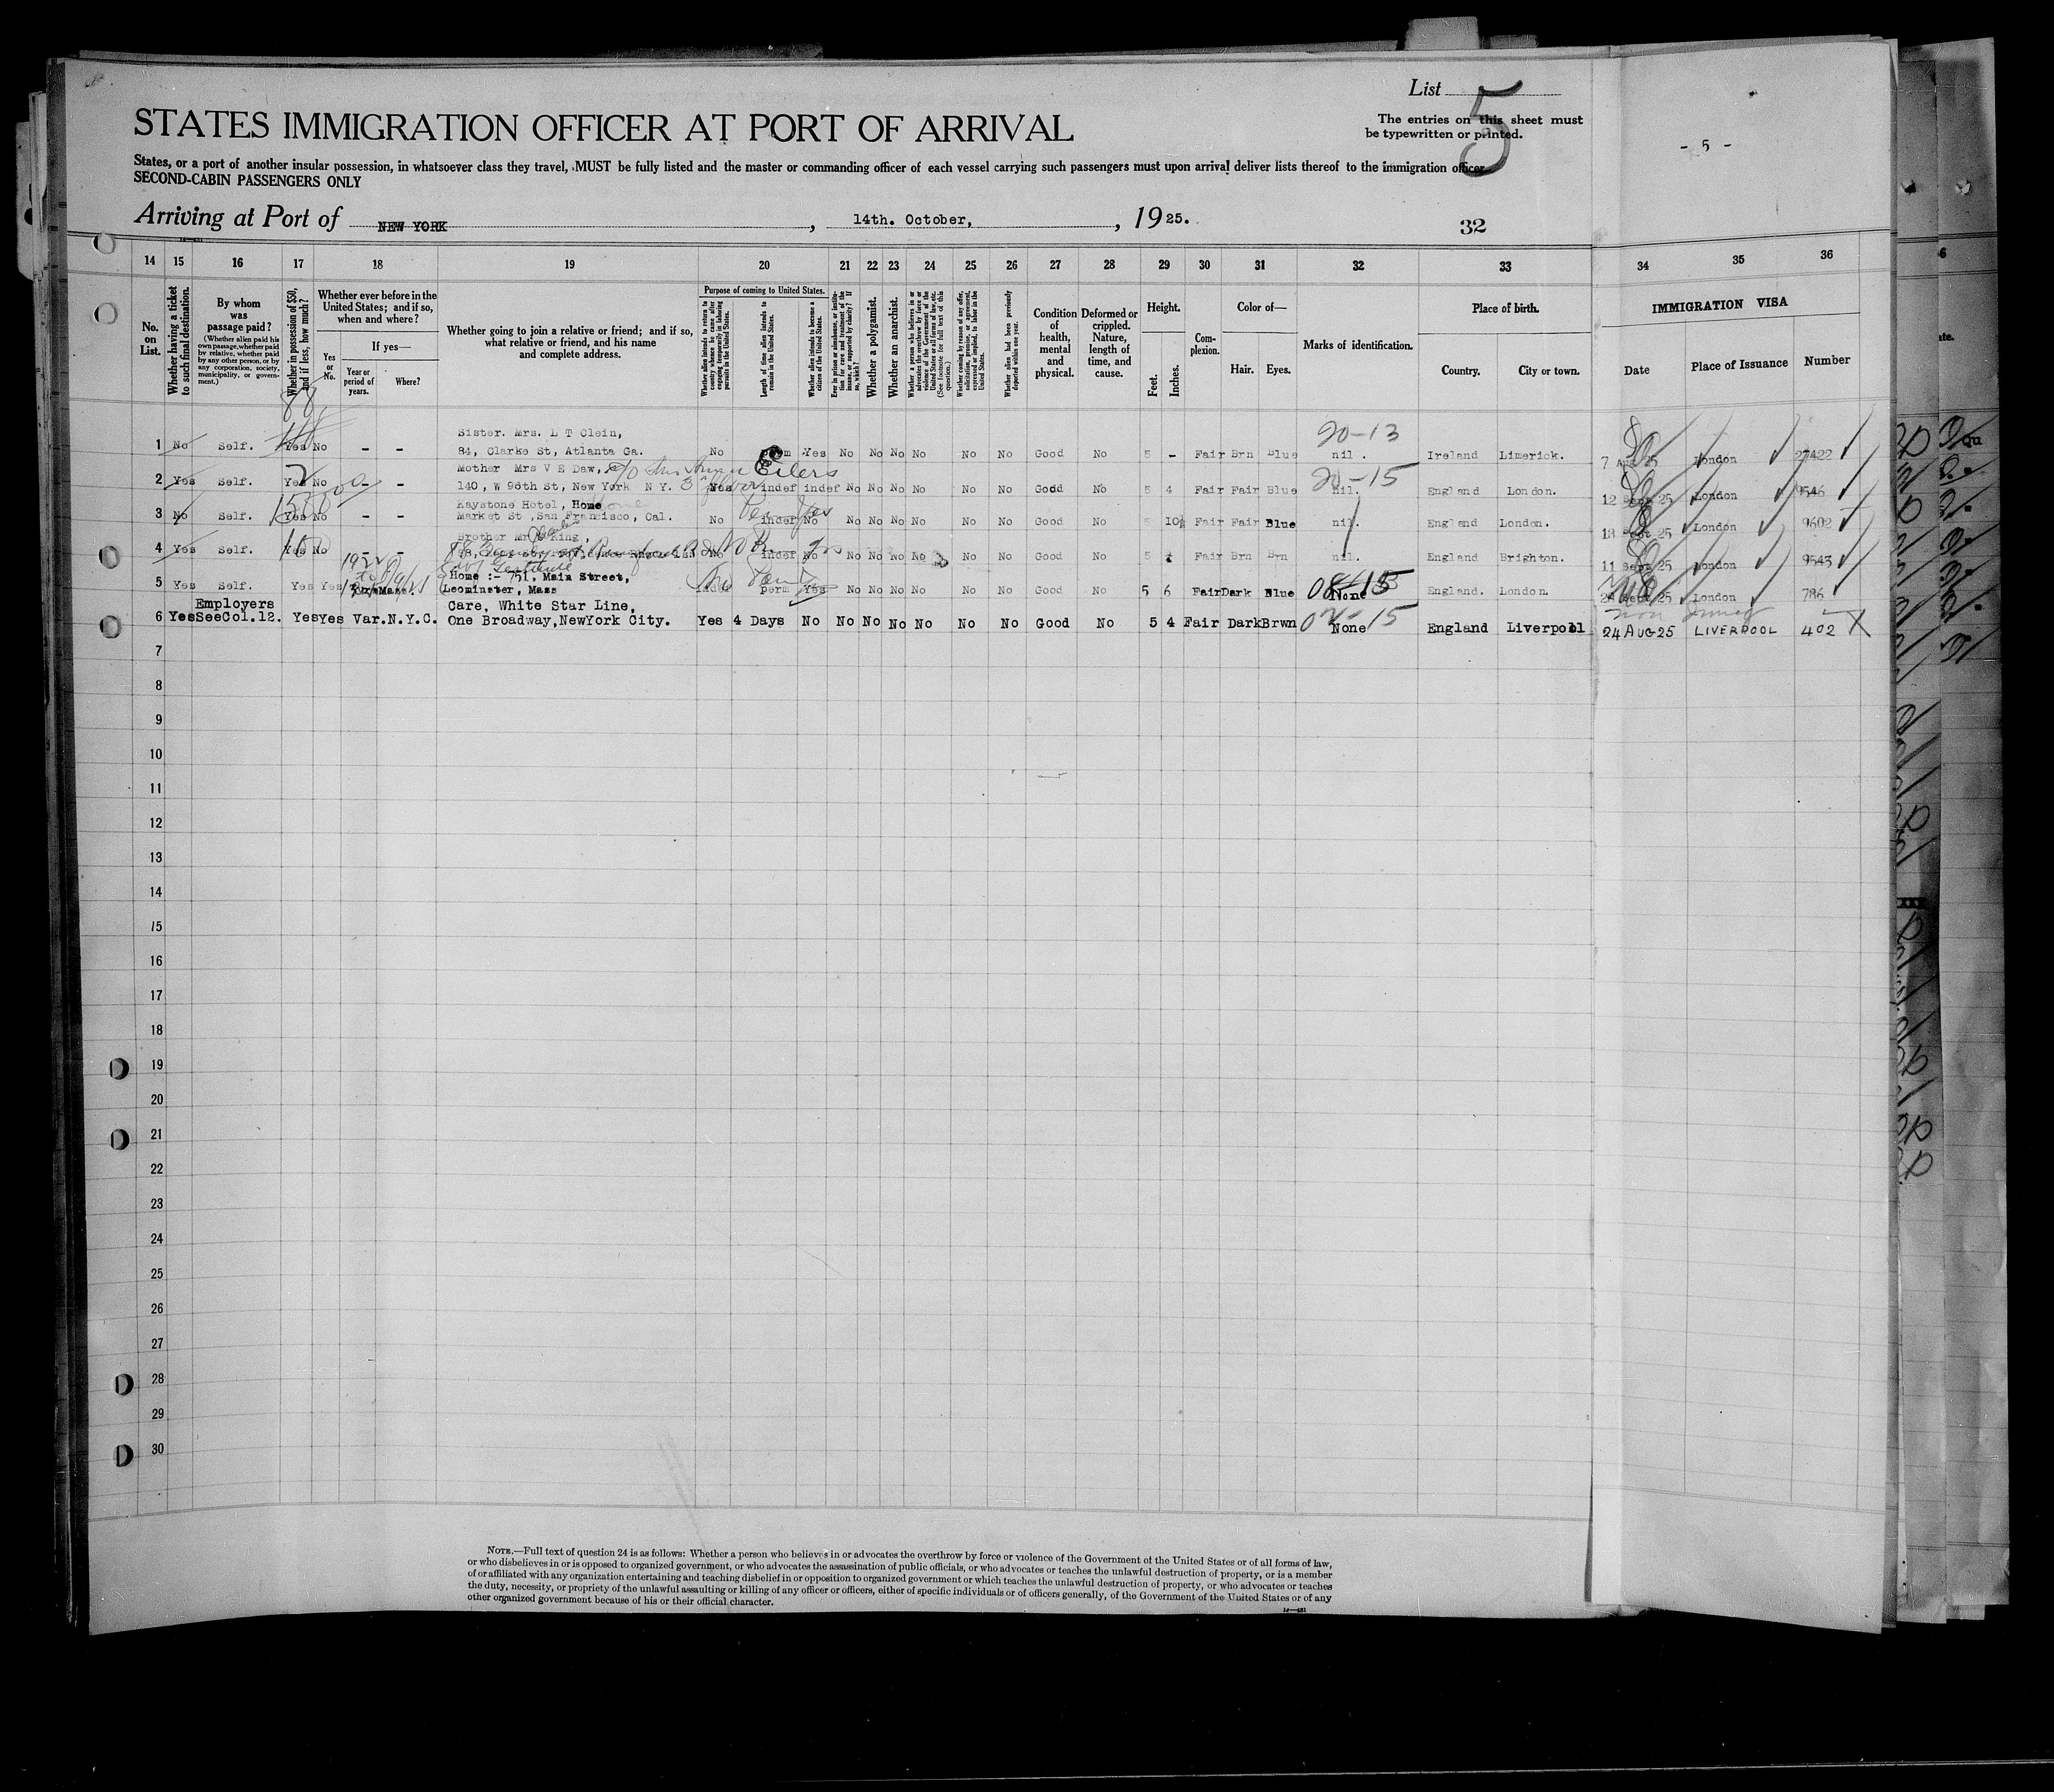 List 5
STATES IMMIGRATION OFFICER AT PORT OF ARRIVAL
The entries on this sheet must
be typewritten or printed.
- 5 -
States, or a port of another insular possession, in whatsoever class they travel, MUST be fully listed and the master or commanding officer of each vessel carrying such passengers must upon arrival deliver lists thereof to the immigration officer
SECOND-CABIN PASSENGERS ONLY
Arriving at Port of NEW YORK, 14th. October, 1925.
32
14 15 16 17 18 19 20 21 22 23 24 25 26 27 28 29 30 31 32 33 34 35 36
No. on List.
Whether having a ticket to such final destination.
By whom was passage paid?
(Whether alien paid his own passage, whether paid by relative, whether paid by any other person, or by any corporation, society, municipality, or government.)
Whether in possession of $50, and if less, how much?
Whether ever before in the United States; and if so, when and where?
Yes or No.
If yes—
Year or period of years.
Where?
Whether going to join a relative or friend; and if so, what relative or friend, and his name and complete address.
Purpose of coming to United States.
Whether alien intends to return to country whence he came after engaging temporarily in laboring pursuits in the United States.
Length of time alien intends to remain in the United States.
Whether alien intends to become a citizen of the United States.
Ever in prison or almshouse, or institution for care and treatment of the insane, or supported by charity? If so, which?
Whether a polygamist.
Whether an anarchist.
Whether a person who believes in or advocates the overthrow by force or violence of the Government of the United States or all forms of law, etc. (See footnote for full text of this question.)
Whether coming by reason of any offer, solicitation, promise, or agreement, expressed or implied, to labor in the United States.
Whether alien had been previously deported within one year.
Condition of health, mental and physical.
Deformed or crippled. Nature, length of time, and cause.
Height.
Feet. Inches.
Complexion.
Color of—
Hair. Eyes.
Marks of identification.
Place of birth.
Country. City or town.
IMMIGRATION VISA
Date Place of Issuance Number
Sister. Mrs. L T Clein, 20-13
1 No Self. Yes No - - 84, Clarke St, Atlanta Ga. No perm Yes No No No No No No Good No 5 - Fair Brn Blue nil. Ireland Limerick. 7 Aug 25 London 27422
Mother Mrs V E Daw, Eilers 20-15
2 Yes Self. Yes No - - 140, W 96th St, New York N Y. Yes indef indef No No No No No No Good No 5 4 Fair Fair Blue nil. England London. 12 Sept 25 London 9546
Kaystone Hotel, Home
3 No Self. Yes No - - Market St, San Francisco, Cal. No indef No No No No No No No Good No 5 10½ Fair Fair Blue nil. England London. 18 Sept 25 London 9602
Brother Mr King,
4 Yes Self. Yes No - - No indef No No No No No No No Good No 5 Fair Brn Brn nil. England Brighton. 11 Sept 25 London 9543
Home :- 751, Main Street,
5 Yes Self. Yes Yes Mass. Leominster, Mass indef perm Yes No No No No No No Good No 5 6 Fair Dark Blue None England. London. Sept 25 London 786
Employers Care, White Star Line, 15
6 Yes SeeCol.12. Yes Yes Var. N.Y.C. One Broadway, NewYork City. Yes 4 Days No No No No No No No Good No 5 4 Fair Dark Brwn None England Liverpool 24 AUG 25 LIVERPOOL 402
7
8
9
10
11
12
13
14
15
16
17
18
19
20
21
22
23
24
25
26
27
28
29
30
NOTE.—Full text of question 24 is as follows: Whether a person who believes in or advocates the overthrow by force or violence of the Government of the United States or of all forms of law,
or who disbelieves in or is opposed to organized government, or who advocates the assassination of public officials, or who advocates or teaches the unlawful destruction of property, or is a member
of or affiliated with any organization entertaining and teaching disbelief in or opposition to organized government or which teaches the unlawful destruction of property, or who advocates or teaches
the duty, necessity, or propriety of the unlawful assaulting or killing of any officer or officers, either of specific individuals or of officers generally, of the Government of the United States or of any
other organized government because of his or their official character.